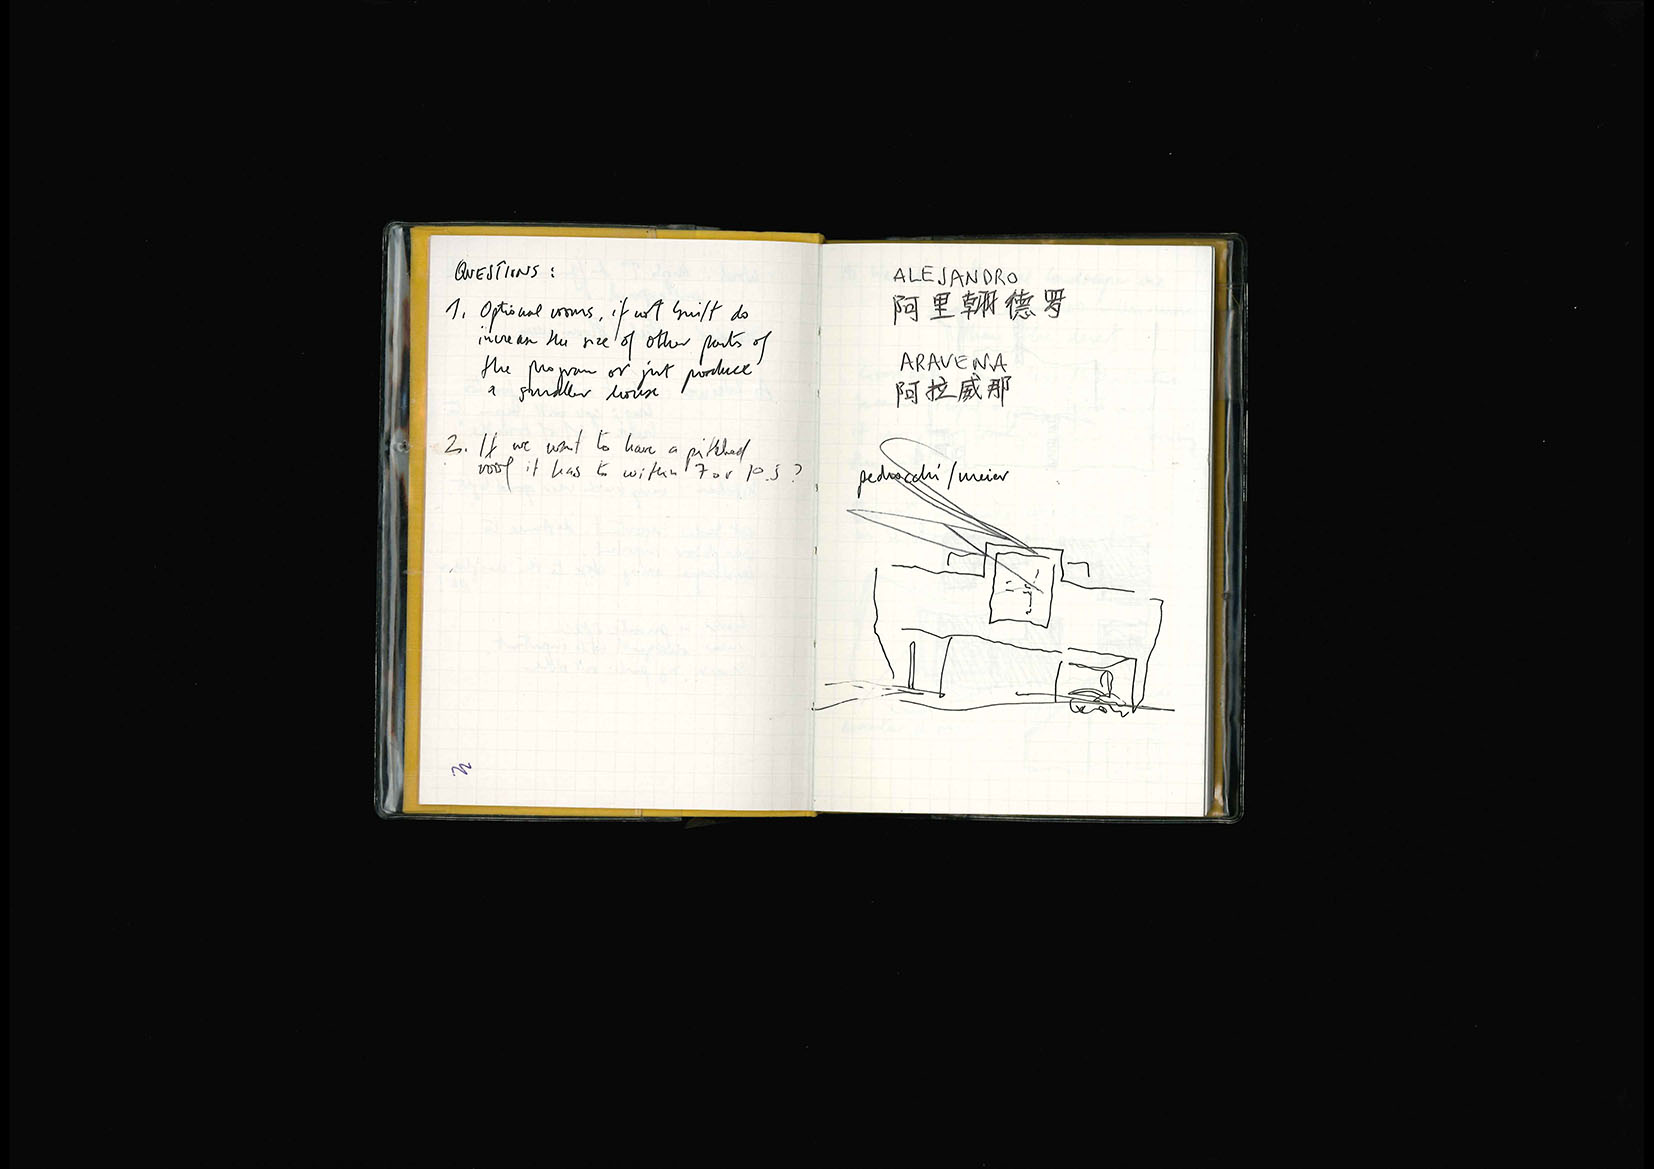 QUESTIONS:
1. Optional rooms, if not built do
increase the size of other parts of
the program or just produce
a smaller house
2. If we want to have a pitched
roof it has to within 7 or 10.5?
ALEJANDRO
阿里翰德罗
ARAVENA
阿拉威那
pedrocchi/meier